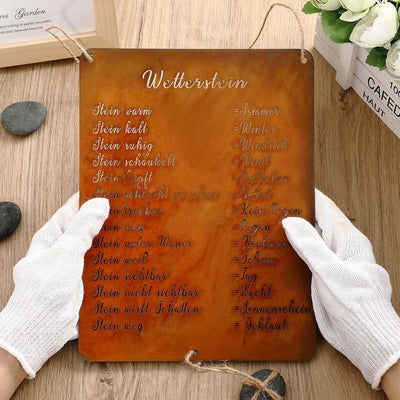 Rose Garden
Wetterstein
Stein warm =Sommer
Stein kalt =Winter
Stein ruhig =Windstill
Stein schaukelt =Wind
Stein hüpft =Erdbeben
Stein schlecht zu sehen =Nebel
Stein trocken =Kein Regen
Stein nass =Regen
Stein unter Wasser
Stein weiß =Schnee
Stein sichtbar =Tag
Stein nicht sichtbar =Nacht
Stein wirft Schatten =Sonnenschein
Stein weg =Geklaut
HAUT